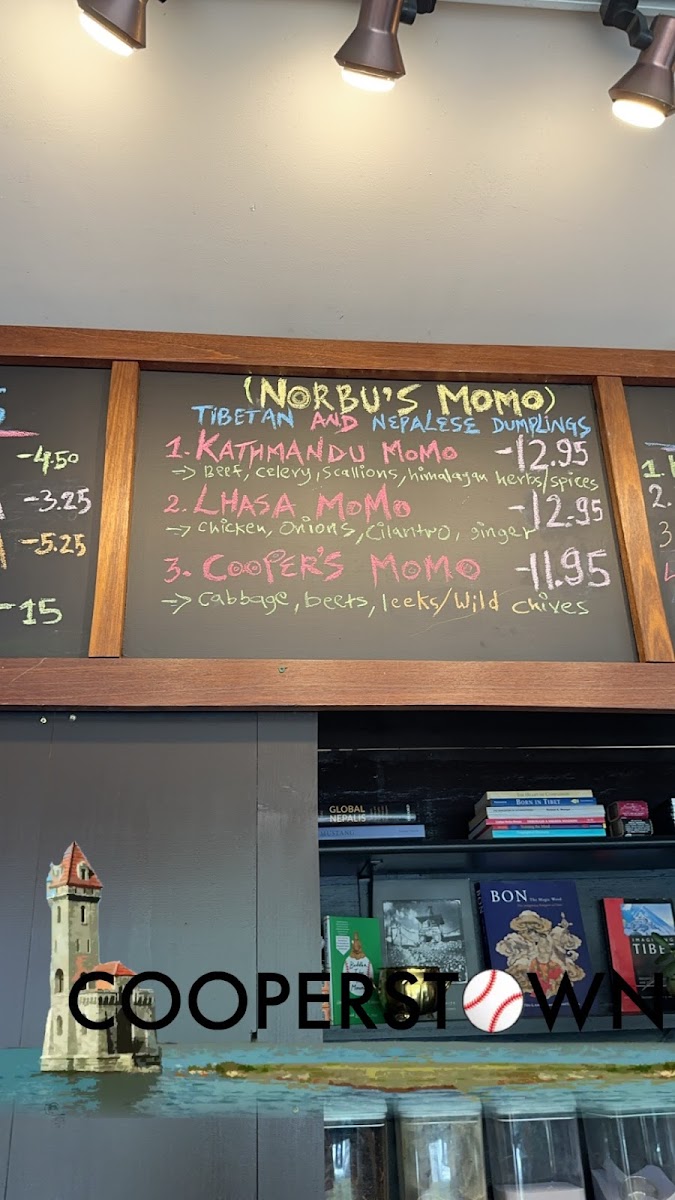 (NORBU'S MOMO)
TIBETAN AND NEPALESE DUMPLINGS
1. KATHMANDU MOMO -12.95
-> Beef, celery, scallions, himalayan herbs/spices
2. LHASA MOMO -12.95
-> chicken, onions, cilantro, ginger
3. COOPER'S MOMO -11.95
-> cabbage, beets, leeks/wild chives
-4.50
-3.25
-5.25
-15
1.
2.
3
GLOBAL
NEPALIS
MUSTANG
BORN IN TIBET
BON The Magic Word
TIBE
COOPERSTOWN